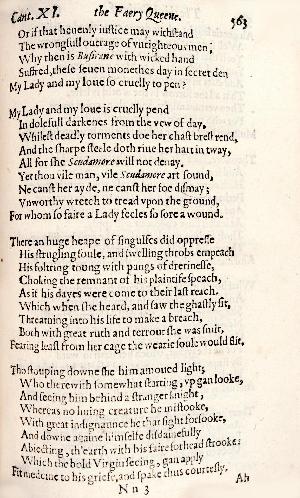 Cant. XI. the Faery Queene. 563
Or if that heuenly iustice may withstand
The wrongfull outrage of vnrighteous men,
Why then is Busirane with wicked hand
Suffred, these seuen monethes day in secret den
My Lady and my loue so cruelly to pen?
My Lady and my loue is cruelly pend
In dolefull darkenes from the vew of day,
Whilest deadly torments doe her chast brest rend,
And the sharpe steele doth riue her hart in tway,
All for she Scudamore will not denay.
Yet thou vile man, vile Scudamore art sound,
Ne canst her ayde, ne canst her foe dismay;
Vnworthy wretch to tread vpon the ground,
For whom so faire a Lady feeles so sore a wound.
There an huge heape of singulfes did oppresse
His strugling soule, and swelling throbs empeach
His foltring toung with pangs of drerinesse,
Choking the remnant of his plaintife speach,
As if his dayes were come to their last reach.
Which when she heard, and saw the ghastly fit,
Threatning into his life to make a breach,
Both with great ruth and terrour she was smit,
Fearing least from her cage the wearie soule would flit.
Tho stouping downe she him amoued light;
Who therewith somewhat starting, vp gan looke,
And seeing him behind a stranger knight,
Whereas no liuing creature he mistooke,
With great indignaunce he that sight forsooke,
And downe againe himselfe disdainefully
Abiecting, th'earth with his faire forhead strooke:
Which the bold Virgin seeing, gan apply
Fit medcine to his griefe, and spake thus courtesly.
N n 3 Ah